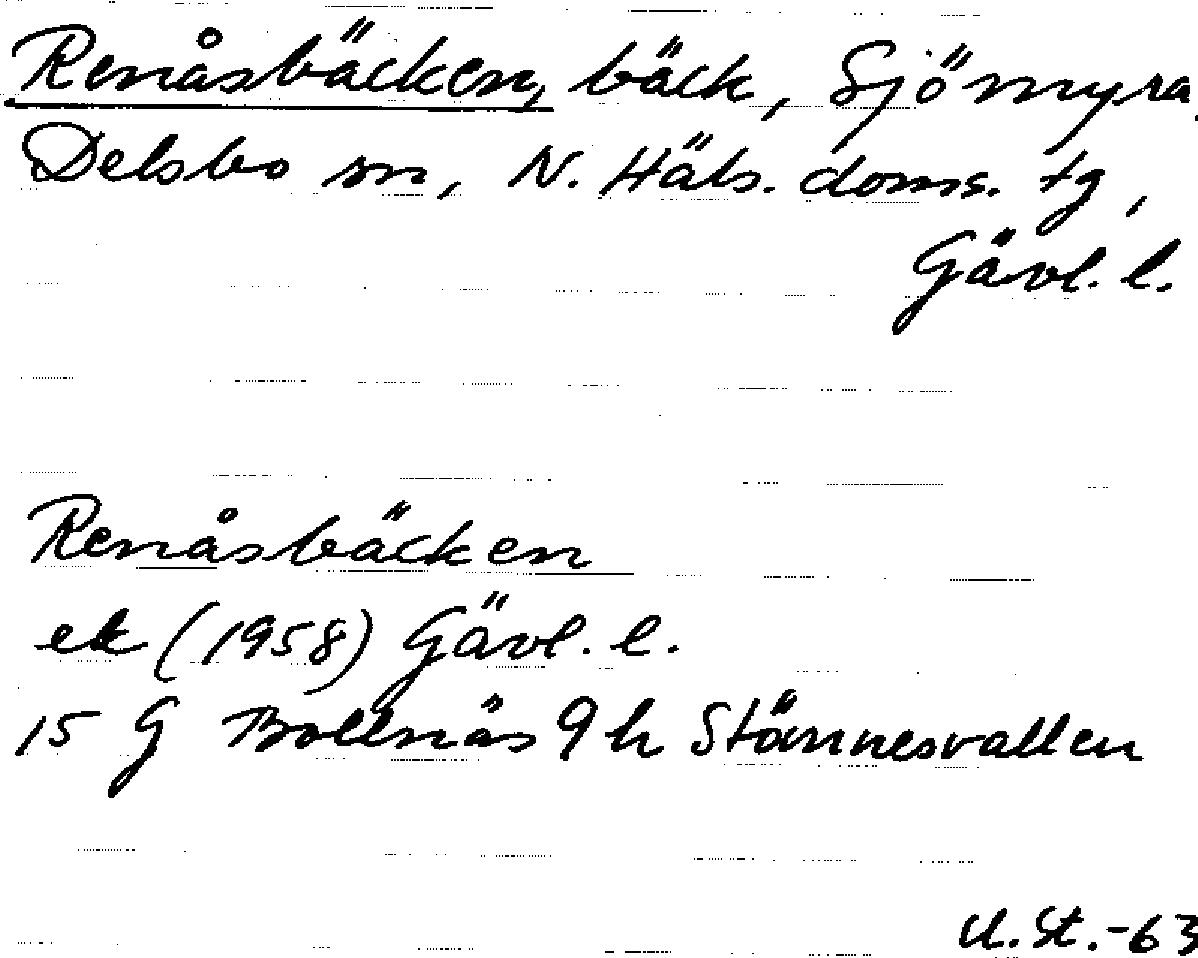 Renåsbäcken, bäck, Sjömyra,
Delsbo sn, N. Häls. doms. tg,
Gävl. l.
Renåsbäcken
ek (1958) Gävl. l.
15 G Bollnäs 9 h Stännesvallen
U. St. -63